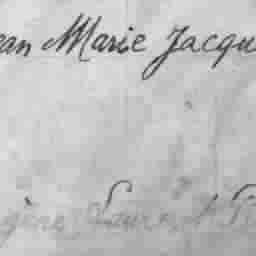 ean Marie Jacqu
gène Laurent Pi